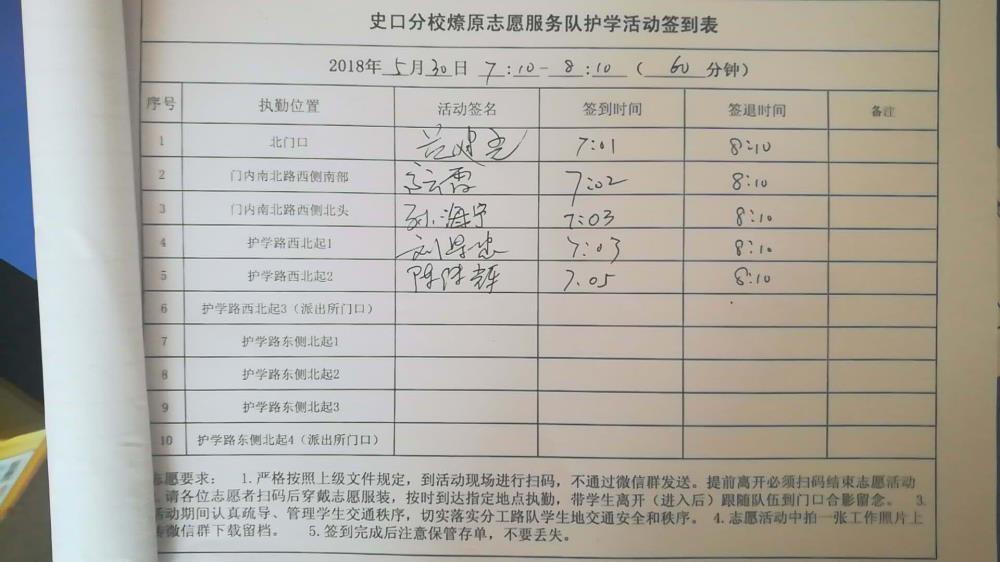 史口分校燎原志愿服务队护学活动签到表
2018年 5 月 30 日 7:10-8:10 ( 60 分钟)
序号 执勤位置 活动签名 签到时间 签退时间 备注
1 北门口 7:01 8:10
2 门内南北路西侧南部 7:02 8:10
3 门内南北路西侧北头 孙海宁 7:03 8:10
4 护学路西北起1 7:03 8:10
5 护学路西北起2 7.05 8:10
6 护学路西北起3（派出所门口）
7 护学路东侧北起1
8 护学路东侧北起2
9 护学路东侧北起3
10 护学路东侧北起4（派出所门口）
志愿要求： 1.严格按照上级文件规定，到活动现场进行扫码，不通过微信群发送。提前离开必须扫码结束志愿活动
请各位志愿者扫码后穿戴志愿服装，按时到达指定地点执勤，带学生离开（进入后）跟随队伍到门口合影留念。 3.
活动期间认真疏导、管理学生交通秩序，切实落实分工路队学生地交通安全和秩序。 4.志愿活动中拍一张工作照片上
微信群下载留档。 5.签到完成后注意保管存单，不要丢失。